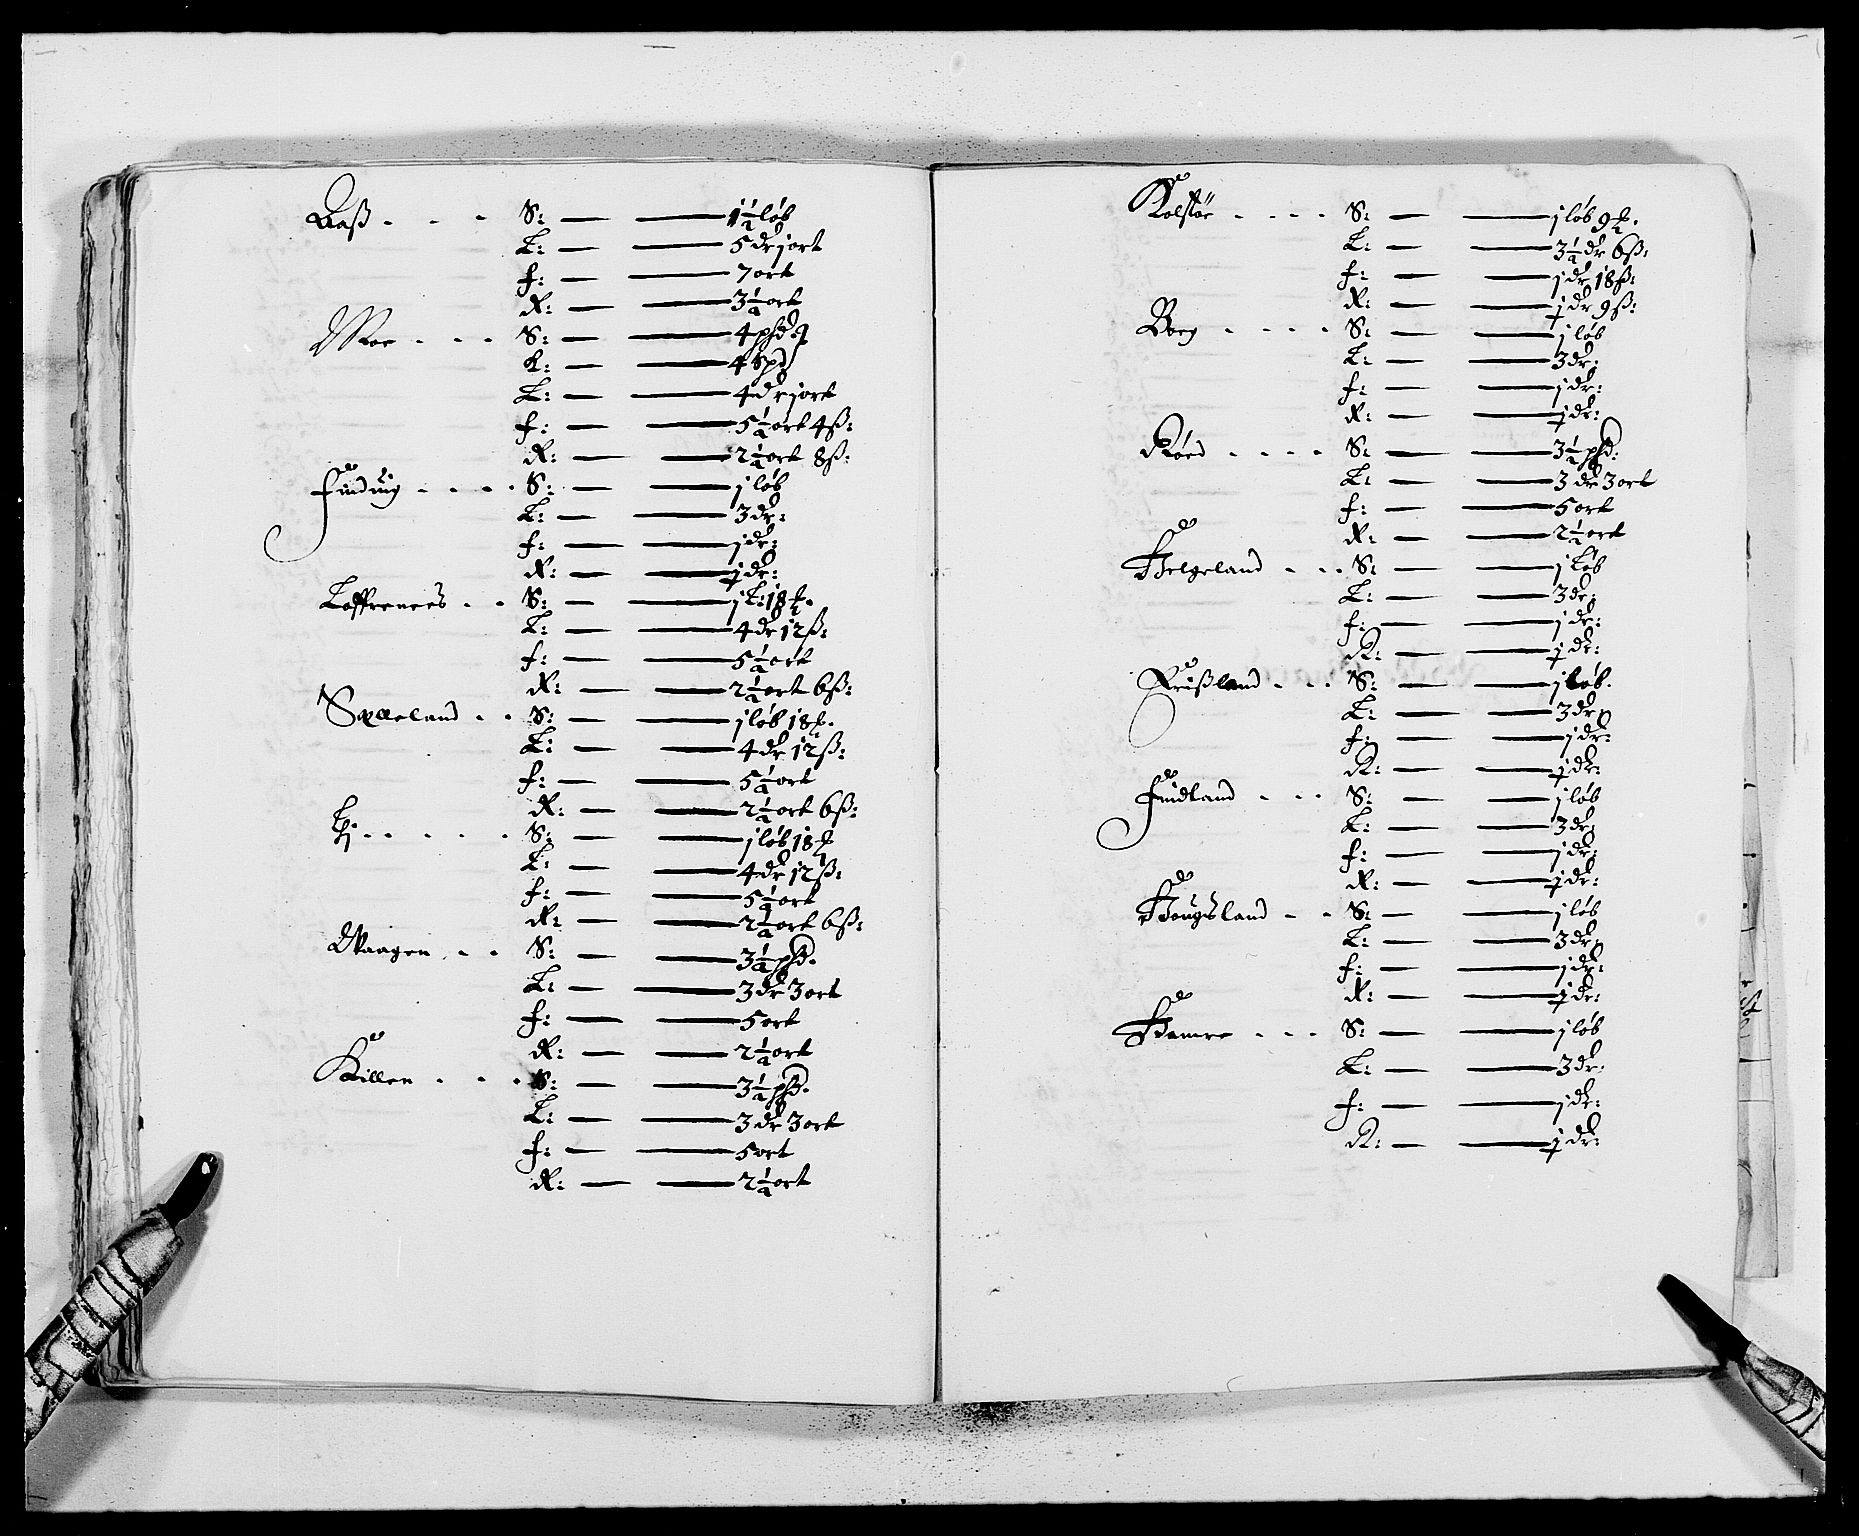 Aaß - - - S: — — 1½ løb
L: — — 5 dr j ort
f: — — 7 ort
R: — — 3½ ort
Moe - - - S: — — 4 pſd
K: — — 4 Spd
L: — — 4 dr j ort
f: — — 5½ ort 4 ß:
R: — — 2½ ort 8 ß:
Finding - - - - S: — — j løb
L: — — 3 dr:
f: — — j dr:
R: — — ½ dr:
Loffrenees - - S: — — j L: 18
L: — — 4 dr 12 ß:
f: — — 5½ ort
R: — — 2½ ort 6 ß:
Sæleland - - S: — — j løb 18
L: — — 4 dr 12 ß:
f: — — 5½ ort
R: — — 2½ ort 6 ß:
Lj - - - - - S: — — j løb 18
L: — — 4 dr 12 ß:
f: — — 5½ ort
R: — — 2½ ort 6 ß:
Waagen - - S: — — 3½ pſd.
L: — — 3 dr 3 ort
f: — — 5 ort
R: — — 2½ ort
Killen - - - S: — — 3½ pſd.
L: — — 3 dr 3 ort
f: — — 5 ort
R: — — 2½ ort
Kolstøe - - - - S: — — j løb 9
L: — — 3½ dr 6 ß:
f: — — j dr 18 ß:
R: — — ½ dr 9 ß:
Borg - - - - S: — — j løb
L: — — 3 dr:
f: — — j dr:
R: — — ½ dr:
Røed - - - - S: — — 3½ pſd:
L: — — 3 dr 3 ort
f: — — 5 ort
R: — — 2½ ort
Helgeland - - - S: — — j løb
L: — — 3 dr:
f: — — j dr:
R: — — ½ dr:
Frißland - - - S: — — j løb.
L: — — 3 dr:
f: — — j dr:
R: — — ½ dr:
Findland - - - S: — — j løb
L: — — 3 dr:
f: — — j dr:
R: — — ½ dr:
Hougsland - - S: — — j løb
L: — — 3 dr:
f: — — j dr:
R: — — ½ dr:
Hamre - - - S: — — j løb
L: — — 3 dr:
f: — — j dr:
R: — — ½ dr: